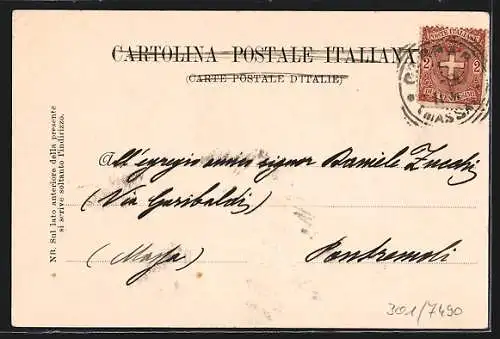 CARTOLINA POSTALE ITALIANA
(CARTE POSTALE D'ITALIE)
POSTE ITALIANE
2 2
(MASSA)
All'egregio amico signor Daniele Zucchi
(Via Garibaldi)
(Massa) Pontremoli
NB. Sul lato anteriore della presente
si scrive soltanto l'indirizzo.
301/7490